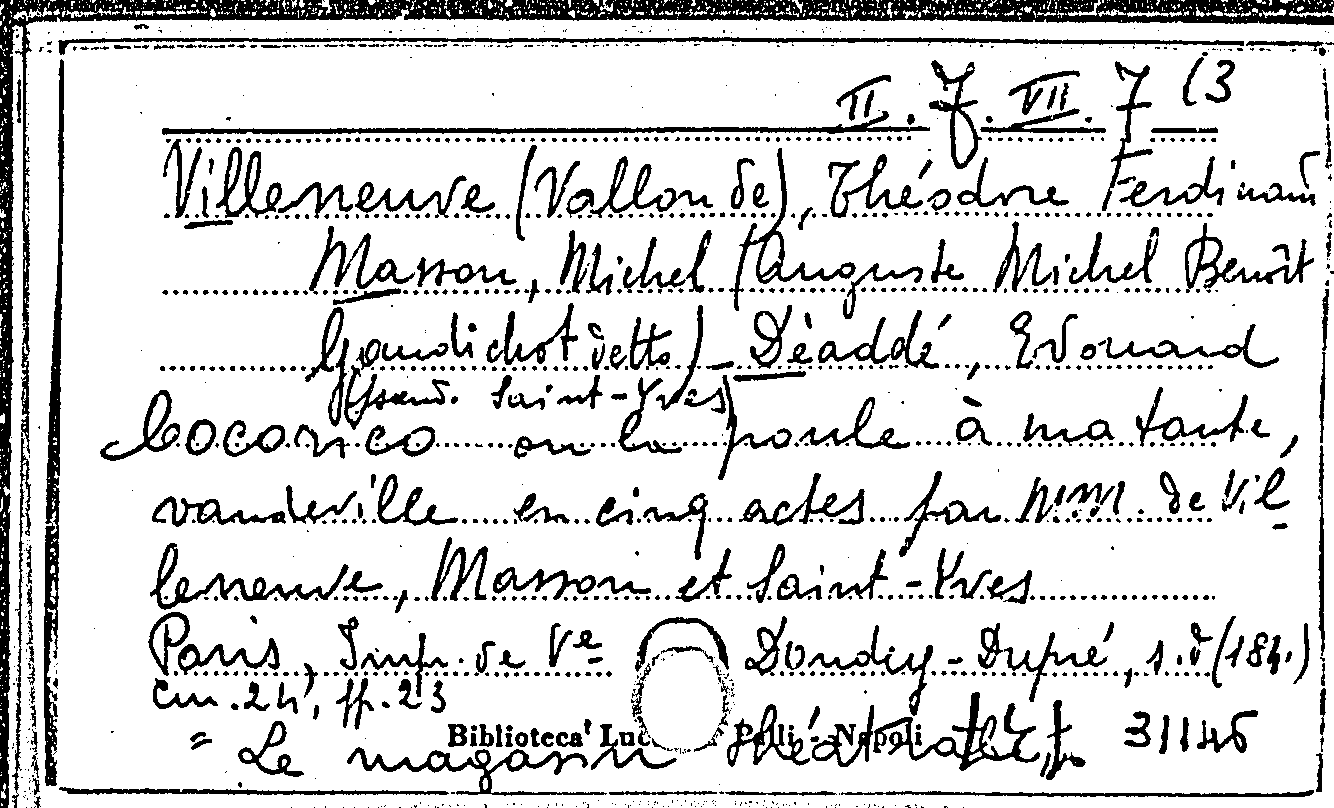 II. 7. VII. 7 (3
Villeneuve (Vallou de), Théodore Ferdinand
Masson, Michel (Auguste Michel Benoît
Gaudichot detto) - Dèaddé, Edouard
(pseud. Saint-Yves)
Cocorico ou la poule à ma tante,
vaudeville en cinq actes par MM. de Vil
leneuve, Masson et Saint-Yves
Paris, Imp. de Ve Dondey-Dupré, s.d (184.)
cm. 24, pp. 23
Biblioteca Luc Palli - Napoli
= Le magasin théâtral 31146